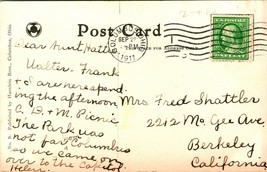 Post Card
COLUMBUS, OHIO
SEP 2
1911
Dear Aunt Hattie
Walter, Frank
& I are here spend-
ing the afternoon
C. D. & M. Picnic
The Park was
not far Columbus
so we came on
over to the Capitol
Helen
Mrs Fred Shattler
2212 Mc Gee Ave
Berkeley
California
Published by Hamilton Bros., Columbus, Ohio.